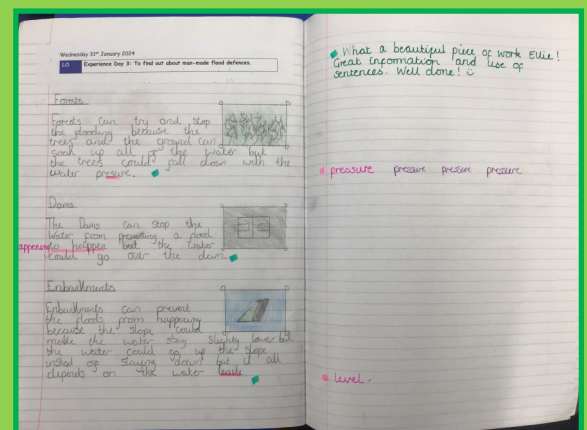 Wednesday 31st January 2024
LO Experience Day 3: To find out about man-made flood defences.
Forests
Forests can try and stop
the flooding because the
trees and the ground can
soak up all of the water but
the trees could fall down with the
water presure.
Dams
The Dams can stop the
water from preventing a flood
appening to happen but the water
could go over the dam.
Embankments
Embankments can prevent
the floods from happening
because the slope could
make the water stay slightly lower but
the water could go up the slope
insted of staying down but it all
depends on the water
What a beautiful piece of work Ellie!
Great information and use of
sentences. Well done!
preasure pressure pressure pressure
level.